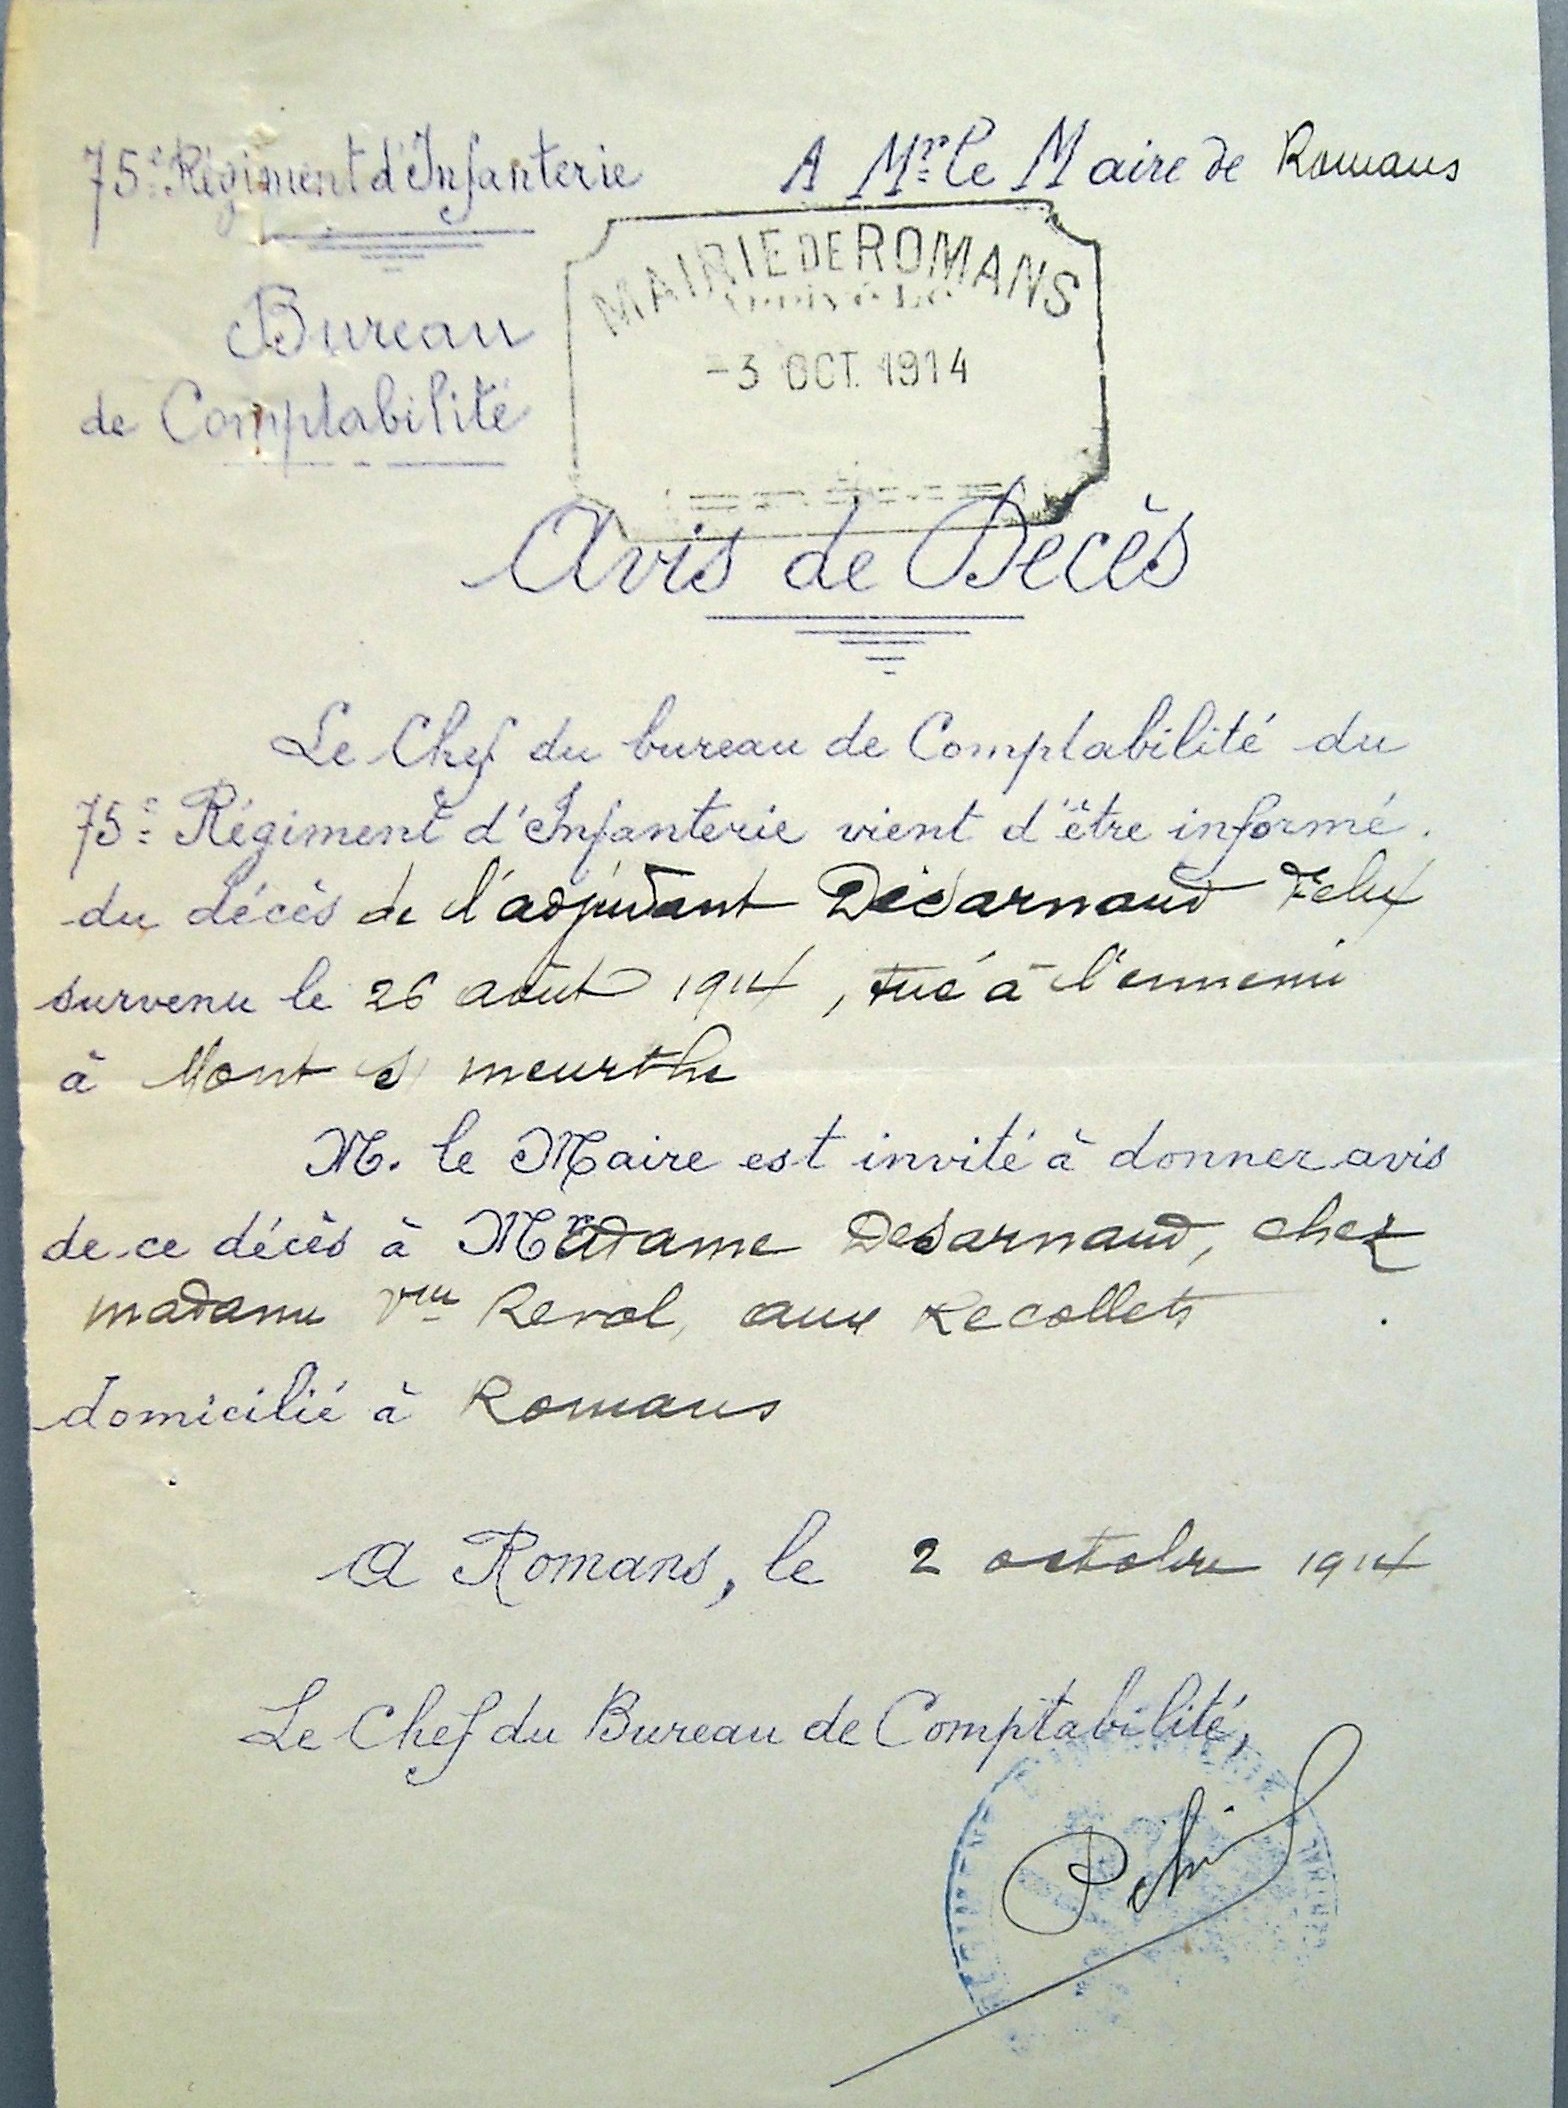 75e Régiment d'Infanterie
A Mr le Maire de Romans
MAIRIE DE ROMANS
-3 OCT. 1914
Bureau
de Comptabilité
Avis de Décès
Le Chef du bureau de Comptabilité du
75e Régiment d'Infanterie vient d'être informé
du décès de l'adjudant Désarnaud Felix
survenu le 26 août 1914, tué à l'ennemi
à Mont s/ meurthe
M. le Maire est invité à donner avis
de ce décès à Madame Desarnaud, chez
madame Vve Revol, aux Recollets
domicilié à Romans
A Romans, le 2 octobre 1914
Le Chef du Bureau de Comptabilité,